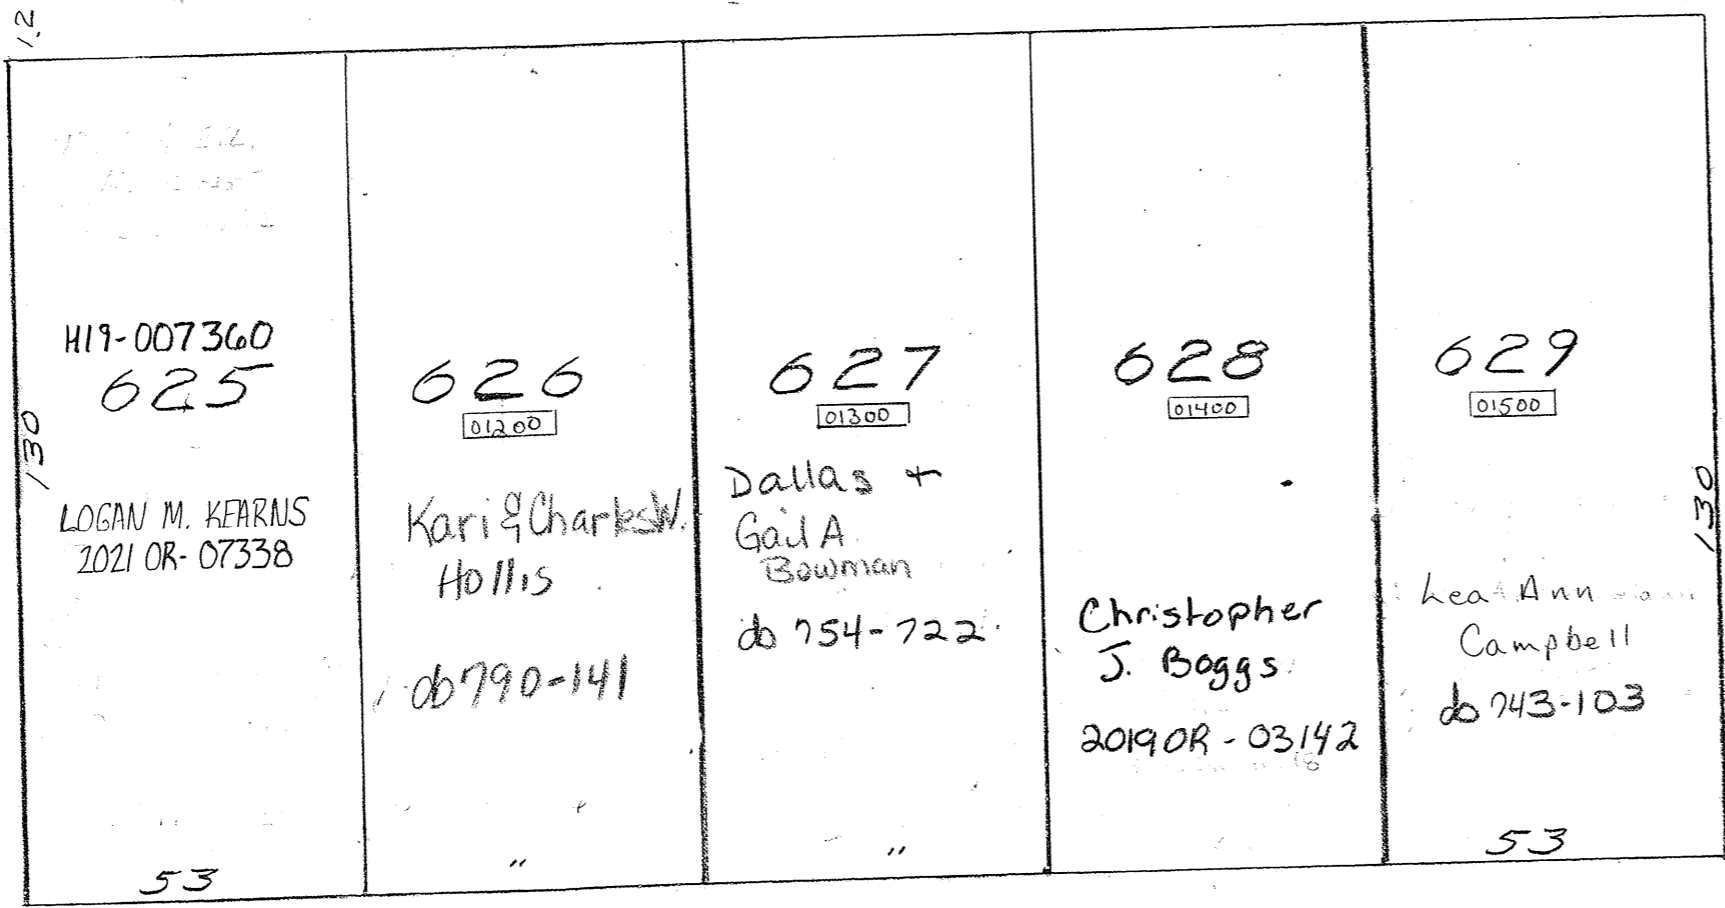 1.2
H19-007360
625
130
LOGAN M. KEARNS
2021 OR-07338
53
626
01200
Kari & Charles W.
Hollis
db 790-141
"
627
01300
Dallas +
Gail A.
Bowman
db 754-722
"
628
01400
Christopher
J. Boggs
2019 OR-03142
629
01500
130
Lea Ann
Campbell
db 743-103
53